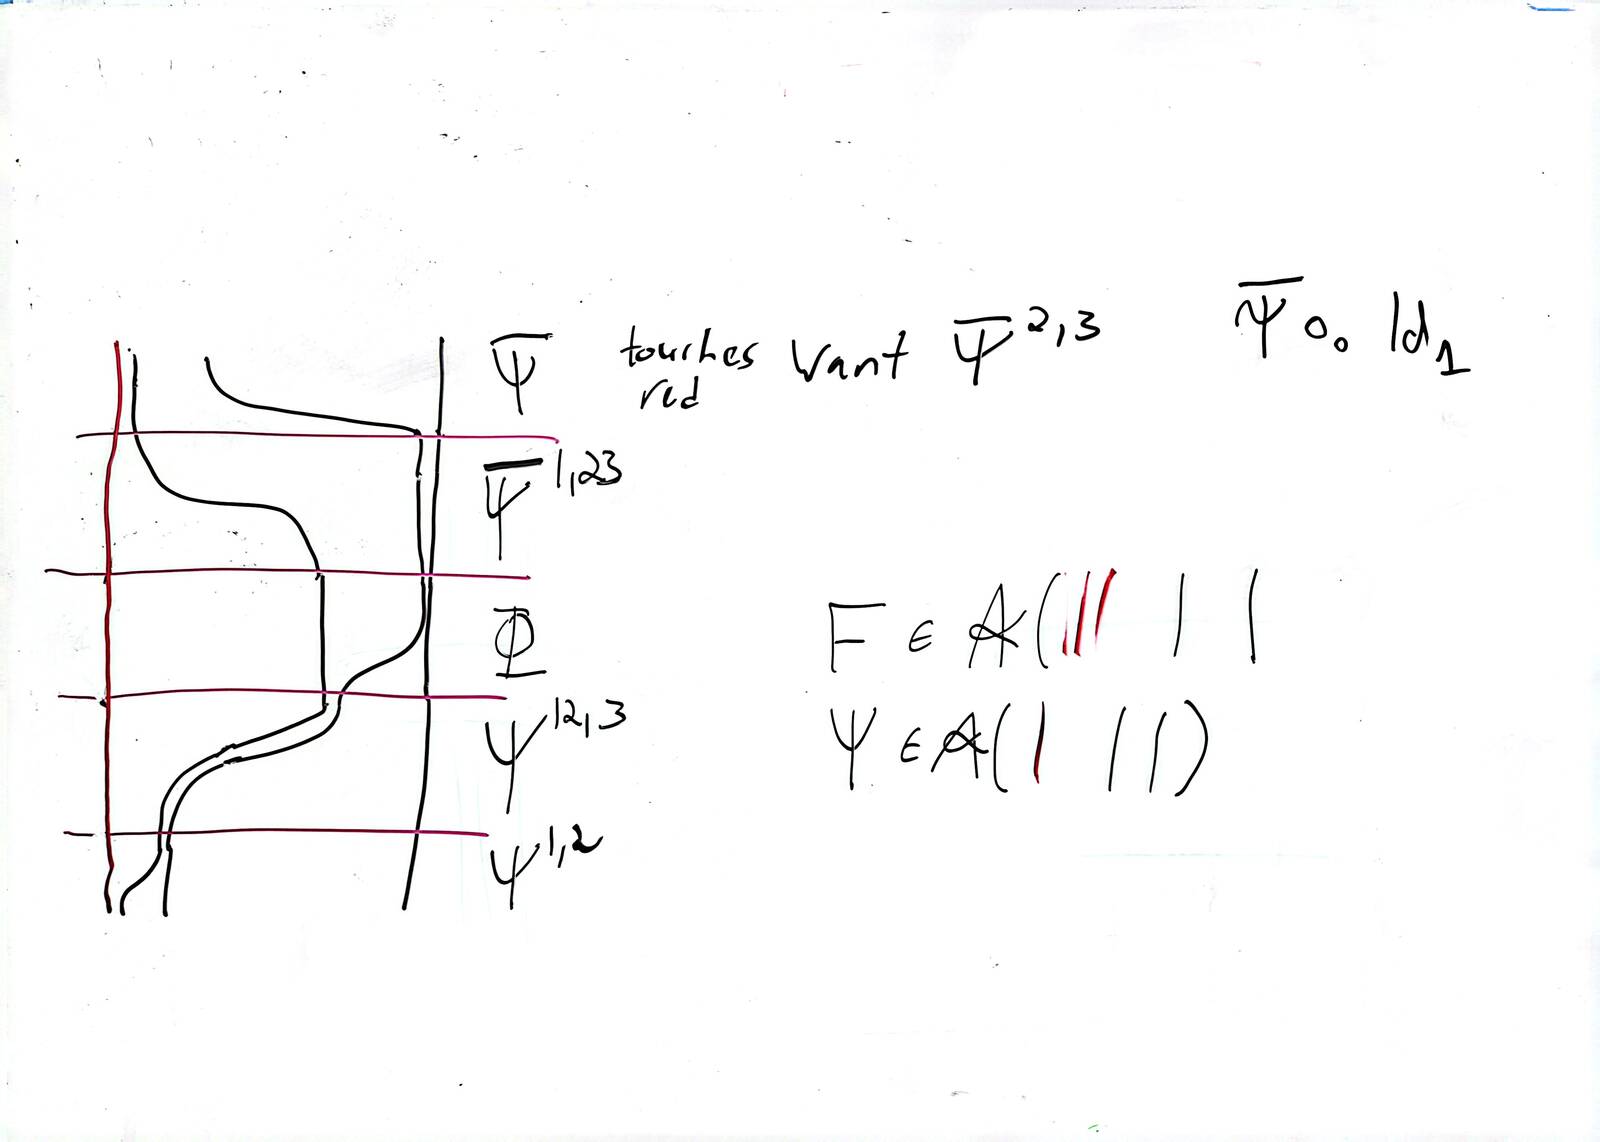 Ψ̅ touches red want Ψ̅^{2,3} Ψ̅ ∘₀ Id₁
Ψ̅^{1,23}
Φ
Ψ^{12,3}
Ψ^{1,2}
F ∈ A(||| | |
Ψ ∈ A(| | |)